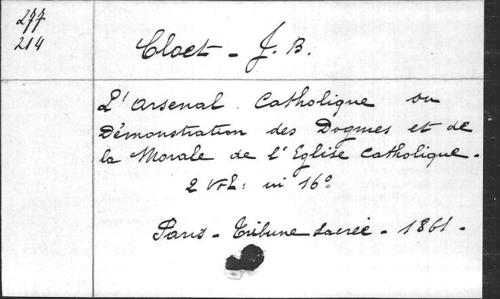 277
214
Cloet - J. B.
L'Arsenal Catholique ou
Démonstration des Dogmes et de
la Morale de l'Eglise Catholique.
2 Vol: in 16º
Paris - Tribune Sacrée - 1861 -